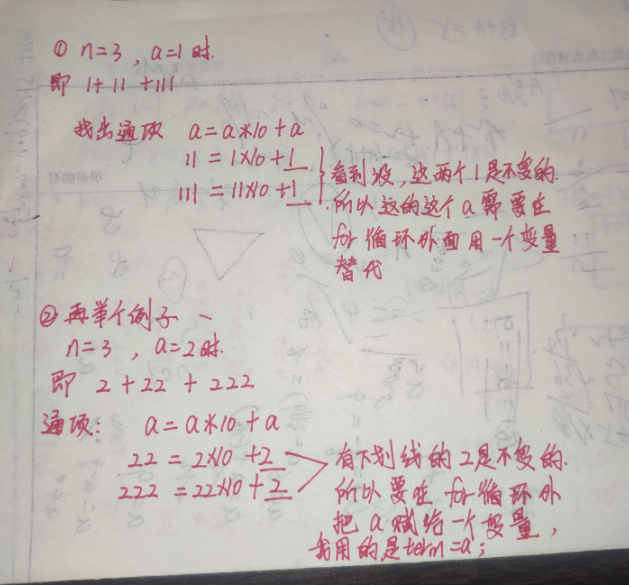 ① n=3 , a=1时.
即 1+11 +111
找出通项 a=a*10+a
11 = 1×10+1
111 = 11×10+1
看到没,这两个1是不变的.
所以这的这个a需要在
for循环外面用一个变量
替代
② 再举个例子
n=3 , a=2时.
即 2+22 + 222
通项: a=a*10+a
22 = 2×10 +2
222 = 22×10+2
有下划线的2是不变的.
所以要在 for循环外
把a赋给一个变量,
我用的是term=a;